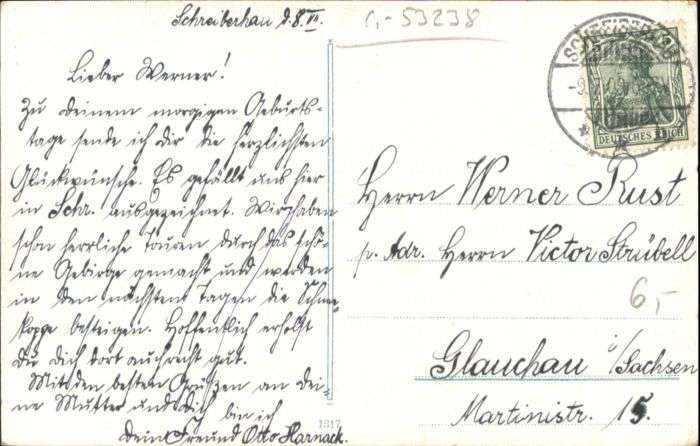 Schreiberhau d. 8. VII.
1,- 53238
Lieber Werner!
Zu deinem morgigen Geburts-
tage sende ich dir die herzlichsten
Glückwünsche. Es gefällt uns hier
in Schr. ausgezeichnet. Wir haben
schon herrliche Touren durch das schö-
ne Gebirge gemacht und werden
in den nächsten Tagen die Schnee-
koppe besteigen. Hoffentlich erholst
Du dich dort auch recht gut.
Mit den besten Grüßen an dei-
ne Mutter und dich bin ich
dein Freund Otto Harnack.
1317
DEUTSCHES REICH
Herrn Werner Rust
p. Adr. Herrn Victor Strübell
6,-
Glauchau i/Sachsen
Martinistr. 15.